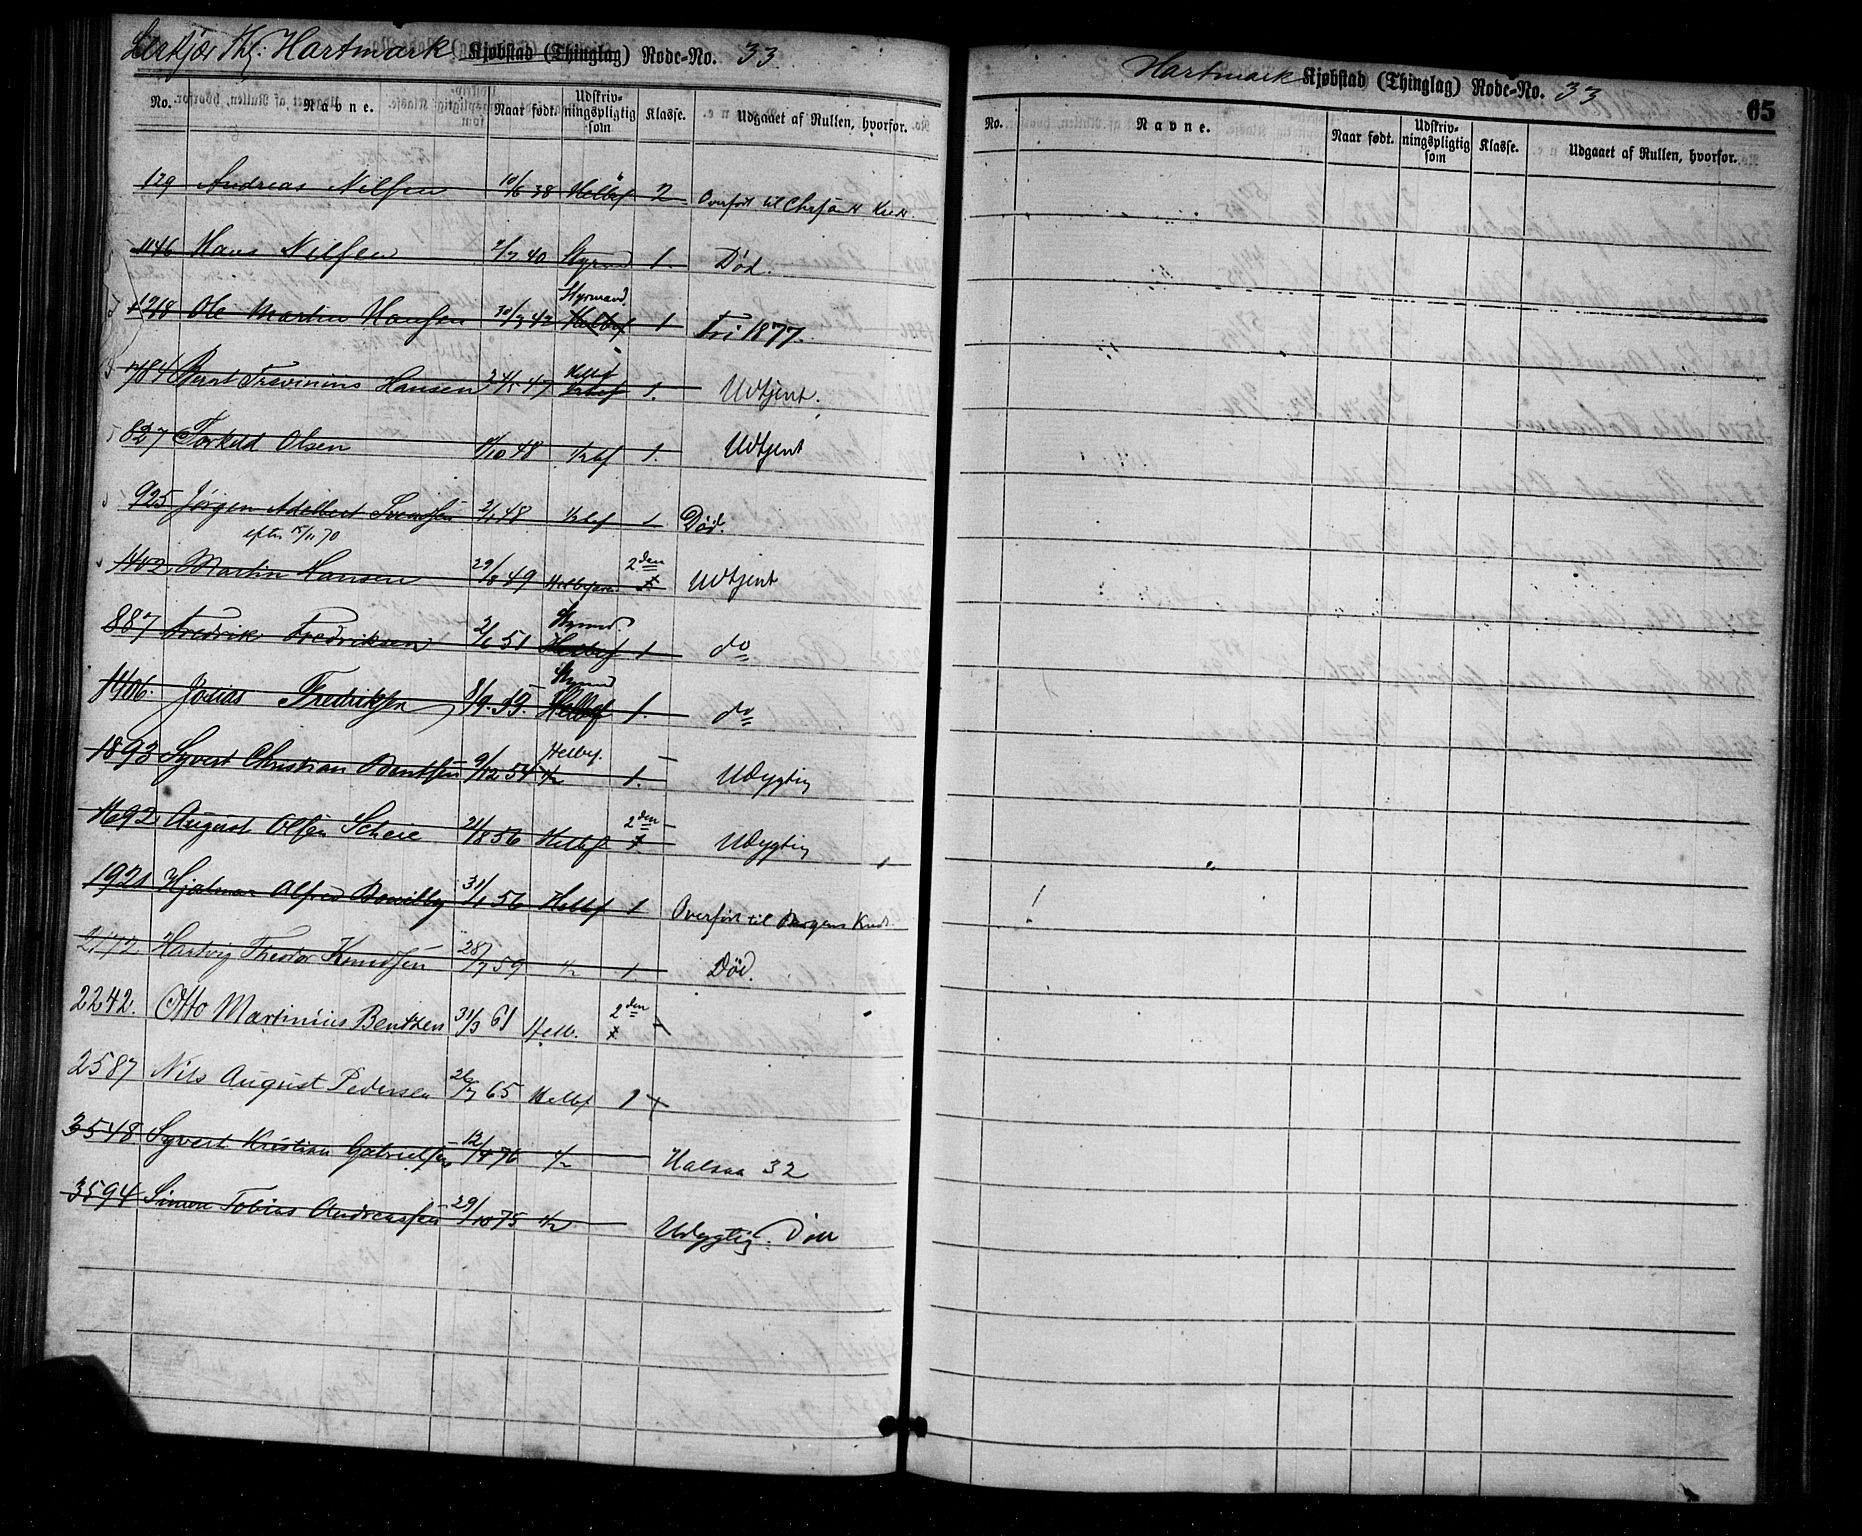 Hartmark Kjøbstad (Thinglag) Rode-No. 33
No. Navne. Naar født. Udskriv-ningspligtig som Klasse. Udgaaet af Rullen, hvorfor.
129 Andreas Nilsen 10/6 38 Helbef 2 Overført til
1146 Hans Nilsen 40 Styrmd 1. Død.
1218 Ole Martin Hansen 30/3 42 Styrmand. Helbef 1 Fri 1877.
784 Bernt Hansen 24/1 47 Helbef 1/2bef 1. Udtjent.
827 Torkild Olsen 8/10 48 1/2bef 1. Udtjent
925 Jørgen Adelbert Svendsen 48 1/2bef 1 Død.
efter 15/11 70
1402 Martin Hansen 29/8 49 Helbefaren 2den 1 Udtjent
887 Fredrik Fredriksen 2/6 51 Styrmd Helbef 1 do
1406. Jonas Fredriksen 8/9 53. Styrmd Helbef 1. do
1893 Syvert Christian Bentsen 9/12 54 Helbef. 1/2 1. Udygtig
1692 August Olsen Scheie 21/8 56 Helbef 2den 1. Udygtig
1921 Hjalmar Alfred 31/1 56 Helbef 1 Overført til Bergens Kreds.
2172 Hartvig Theodor Knudsen 28/7 59 1/2 1 Død.
2242. Otto Martinius Bentsen 31/3 61 Helb. 2den 1
2587 Nils August Pedersen 26/7 65 Helbf 1
3548 Syvert Kristian Gabrielsen 12/4 76 1/2 Halsaa 32
3594 Simon Tobias Andreassen 29/10 75 1/2 Udygtig.
Hartmark Kjøbstad (Thinglag) Rode-No. 33
65
No. Navne. Naar født. Udskriv-ningspligtig som Klasse. Udgaaet af Rullen, hvorfor.